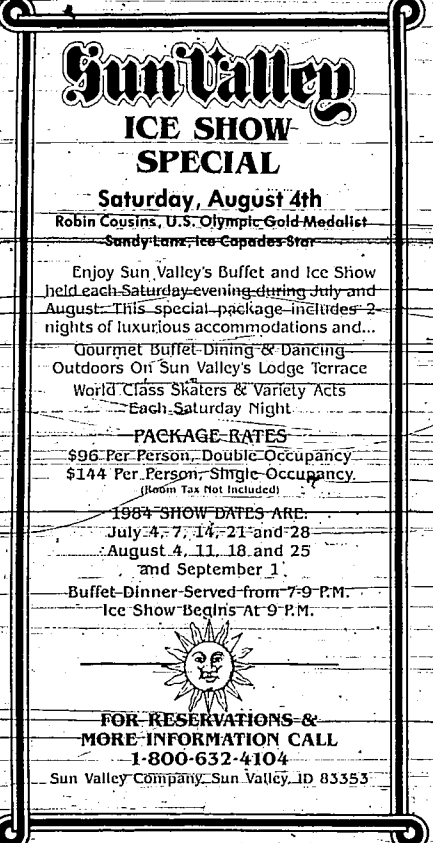 Sun Valley
ICE SHOW
SPECIAL
Saturday, August 4th
Robin Cousins, U.S. Olympic Gold Medalist
Sandy Lenz, Ice Capades Star
Enjoy Sun Valley's Buffet and Ice Show
held each Saturday evening during July and
August. This special package includes 2
nights of luxurious accommodations and...
Gourmet Buffet Dining & Dancing
Outdoors On Sun Valley's Lodge Terrace
World Class Skaters & Variety Acts
Each Saturday Night
PACKAGE RATES
$96 Per Person, Double Occupancy
$144 Per Person, Single Occupancy.
(Room Tax Not Included)
1984 SHOW DATES ARE:
July 4, 7, 14, 21 and 28
August 4, 11, 18 and 25
and September 1
Buffet Dinner Served from 7-9 P.M.
Ice Show Begins At 9 P.M.
FOR RESERVATIONS &
MORE INFORMATION CALL
1-800-632-4104
Sun Valley Company, Sun Valley, ID 83353